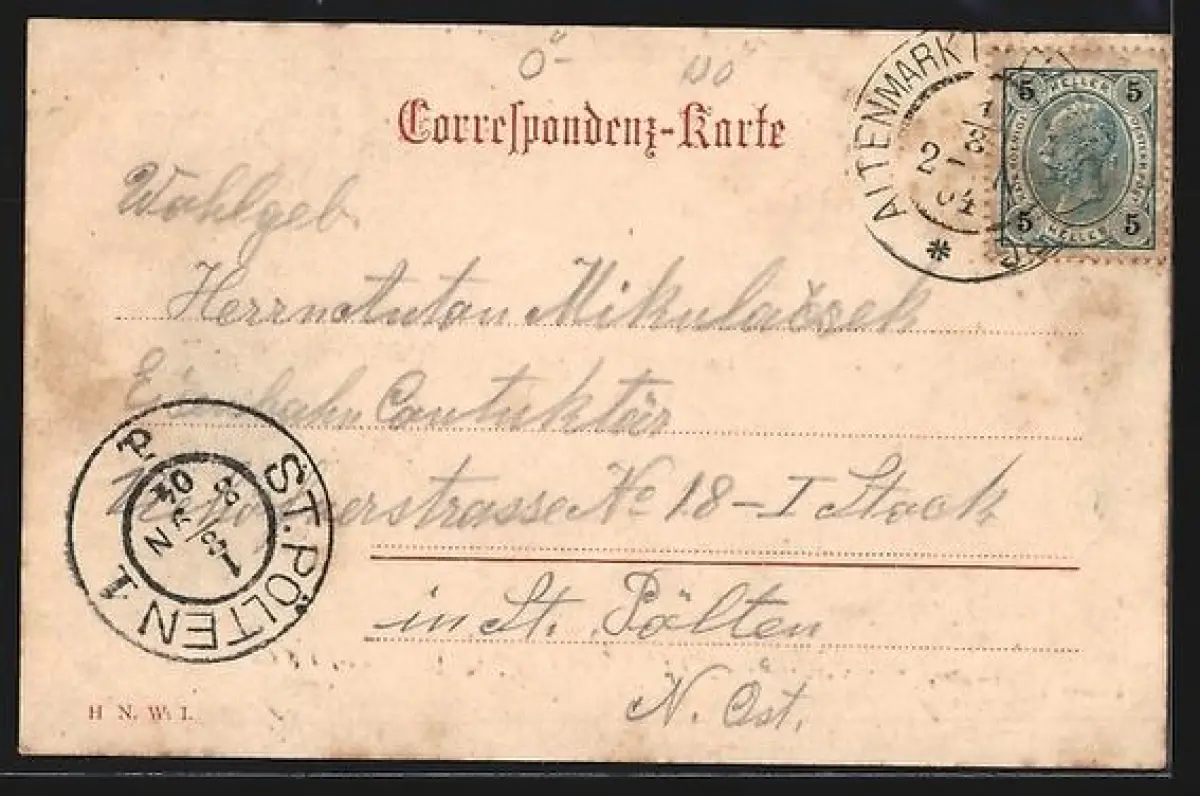 Ö
Correspondenz-Karte
ALTENMARKT
2 1/8 04
5 HELLER 5
5 HELLER 5
Wohlgeb.
Herrn Mikulačsek
Eisenbahn Contuktör
strasse No 18-I Stock
in St. Pölten
N. Öst.
ST. PÖLTEN 1
1/8 04
H N. W. I.